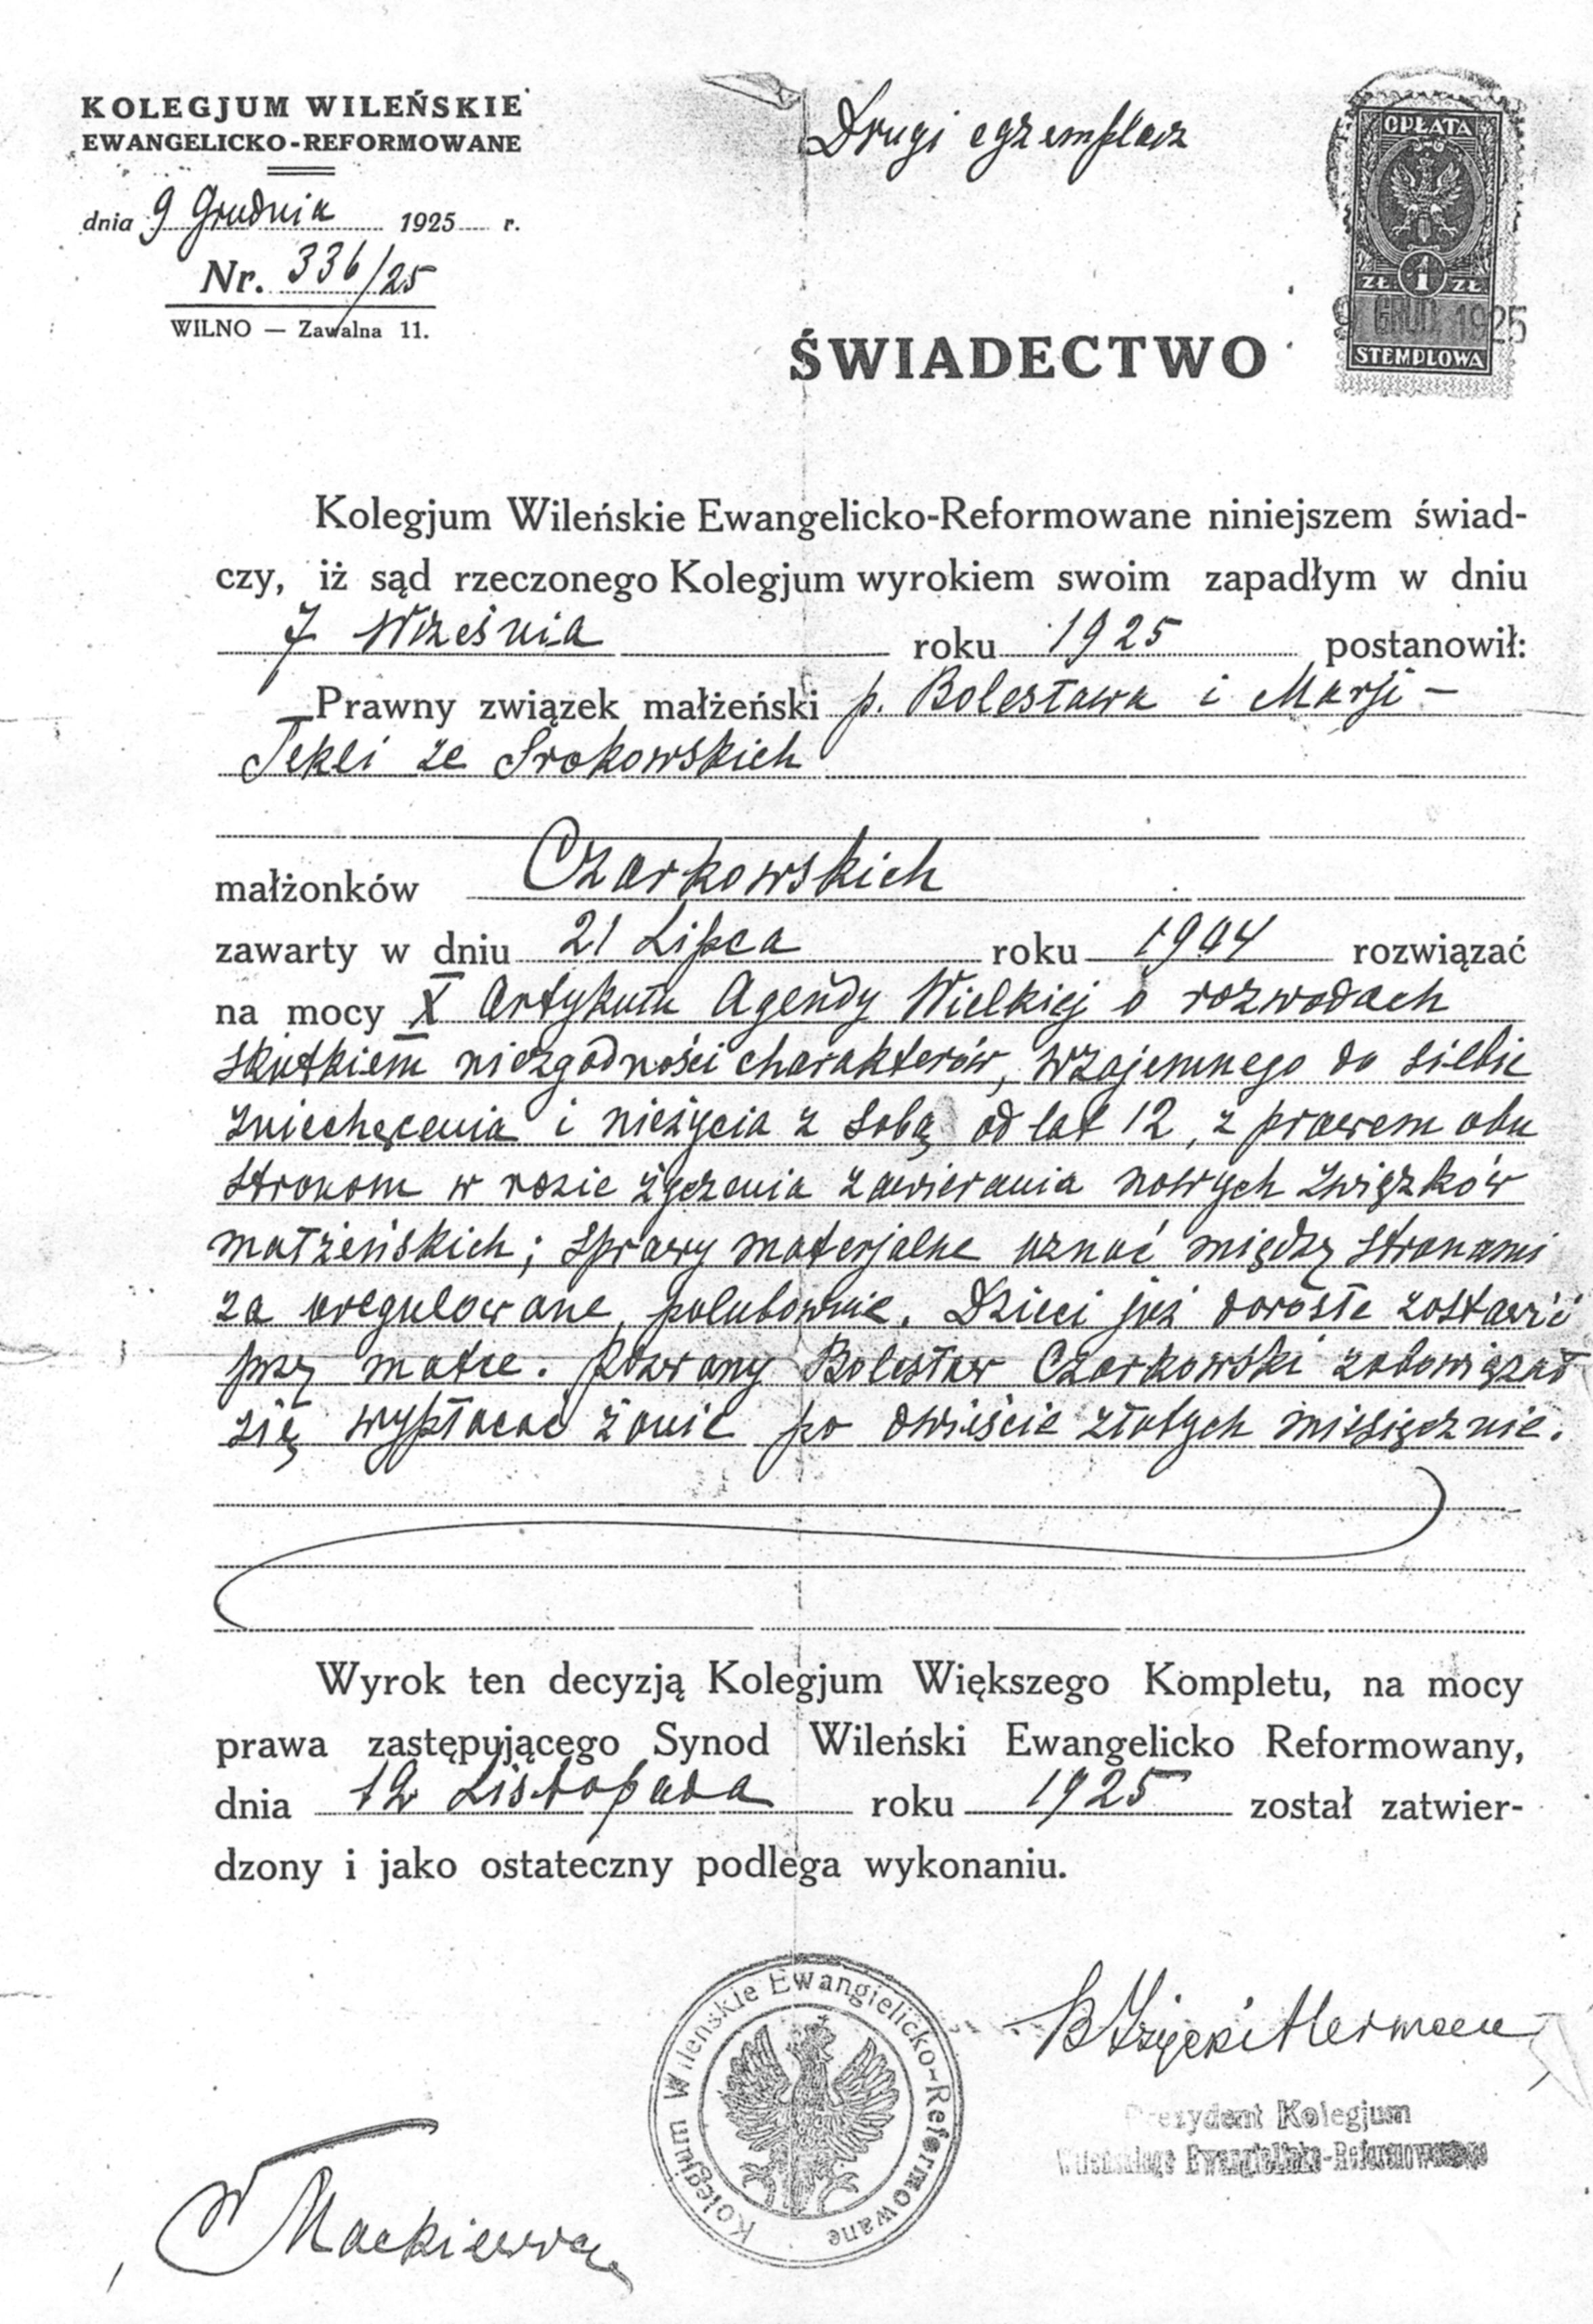 KOLEGJUM WILEŃSKIE
EWANGELICKO-REFORMOWANE
dnia 9 Grudnia 1925 r.
Nr. 336/25
WILNO — Zawalna 11.
Drugi egzemplarz
OPŁATA
ZŁ 1 ZŁ
9 GRUD. 1925
STEMPLOWA
ŚWIADECTWO
Kolegjum Wileńskie Ewangelicko-Reformowane niniejszem świad-
czy, iż sąd rzeczonego Kolegjum wyrokiem swoim zapadłym w dniu
7 Września roku 1925 postanowił:
Prawny związek małżeński p. Bolesława i Marji-
Tekli ze Srokowskich
małżonków Czarkowskich
zawarty w dniu 21 Lipca roku rozwiązać
na mocy X Artykułu Agendy Wielkiej o rozwodach
skutkiem niezgodności charakterów, wzajemnego do siebie
zniechęcenia i nieżycia z sobą od lat 12, z prawem obu
stronom w razie życzenia zawierania nowych związków
małżeńskich; sprawy materjalne uznać między stronami
za uregulowane polubownie. Dzieci już dorosłe zostawić
przy matce. Pozwany Bolesław Czarkowski zobowiązał
się wypłacać żonie po dwieście złotych miesięcznie.
Wyrok ten decyzją Kolegjum Większego Kompletu, na mocy
prawa zastępującego Synod Wileński Ewangelicko Reformowany,
dnia 12 Listopada roku 1925 został zatwier-
dzony i jako ostateczny podlega wykonaniu.
Kolegjum Wileńskie Ewangielicko-Reformowane
Prezydent Kolegjum
Wileńskiego Ewangielicko-Reformowanego
Mackiewicz